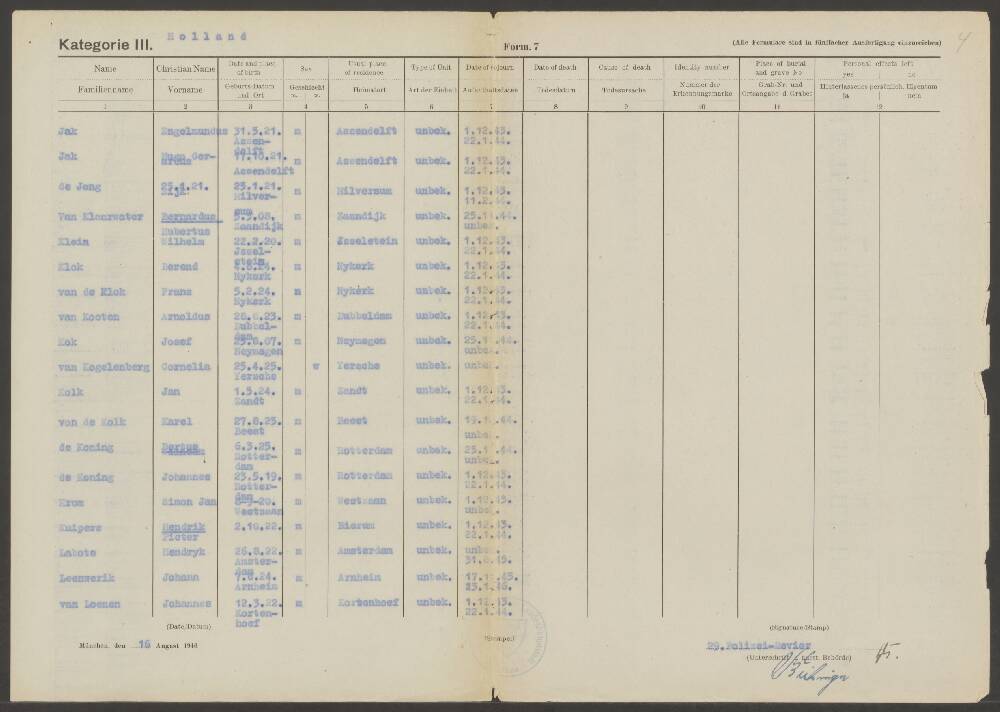 Holland
Kategorie III.
Form. 7
(Alle Formulare sind in fünffacher Ausfertigung einzureichen)
4
Name Christian Name Date and place of birth Sex Usual place of residence Type of Unit Date of sejourn Date of death Cause of death Identity number Place of burial and grave No Personal effects left yes no
Familienname Vorname Geburts-Datum und Ort Geschlecht Heimatort Art der Einheit Aufenthaltsdatum Todesdatum Todesursache Nummer der Erkennungsmarke Grab-Nr. und Ortsangabe d. Grabes Hinterlassenes persönlich. Eigentum ja nein
1 2 3 4 5 6 7 8 9 10 11 12
Jak Engelmundus 31.5.21. m Assendelft unbek. 1.12.43.
Assen- 22.1.44.
delft
Jak Hugo Ger- 17.10.21. m Assendelft unbek. 1.12.43.
Assendelft 22.1.44.
de Jong 25.1.21. m Hilversum unbek. 1.12.43.
Hilver- 11.2.
sum
Van Klaarwater Bernardus 5.9.08. m Zaandijk unbek. 25.11.44.
Hubertus Zaandijk unbek.
Klein Wilhelm 22.2.20. m Jsselstein unbek. 1.12.43.
Jssel- 22.1.44.
stein
Klok Berend m Nykerk unbek. 1.12.43.
Nykerk 22.1.44.
van de Klok Frans 5.2.24. m Nykerk unbek. 1.12.43.
Nykerk 22.1.44.
van Kooten Arnoldus 28.6.23. m Dubbeldam unbek. 1.12.43.
Dubbel- 22.1.44.
dam
Kok Josef m Neymagen unbek. 25.1 .44.
Neymagen unbek.
van Kogelenberg Cornelia 25.4.25. w Yersche unbek. unbek.
Yersche
Kolk Jan 1.5.24. m Zandt unbek. 1.12.43.
Zandt 22.1.44.
von de Kolk Karel 27.8.25. m Beest unbek. 19.1 .44.
Beest unbek.
de Koning Bertus 6.3.25. m Rotterdam unbek. 25.1 .44.
Rotter- unbek.
dam
de Koning Johannes 23.5.19. m Rotterdam unbek. 1.12.43.
Rotter- 22.1.44.
dam
Krom Simon Jan m Westzaan unbek. 1.12.43.
Westzaan unbek.
Kuipers Hendrik 2.10.22. m Bierum unbek. 1.12.43.
Pieter 22.1.44.
Labots Hendryk 26.8.22. m Amsterdam unbek. unbek.
Amster- 31.
dam
Leenwerik Johann 7.6.24. m Arnheim unbek. 17.1 .45.
Arnheim
van Loenen Johannes 12.3.22. m Kortenhoef unbek. 1.12.43.
Korten- 22.1.44.
hoef
(Date/Datum) (Stempel) (Signature/Stamp)
München, den 16 August 1946
29.Polizei-Revier
(Unterschrift d. ausst. Behörde)